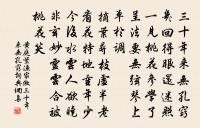 三十年來無孔竅
幾回得眼還迷照
一見桃花參學了
呈法要無弦琴上
單于調
摘葉尋枝虛半老
拈花特地重年少
今後水雲人欲曉
非玄妙靈雲合破
桃花笑
黃庭堅漁家傲三十年
來無孔竅詞典網集